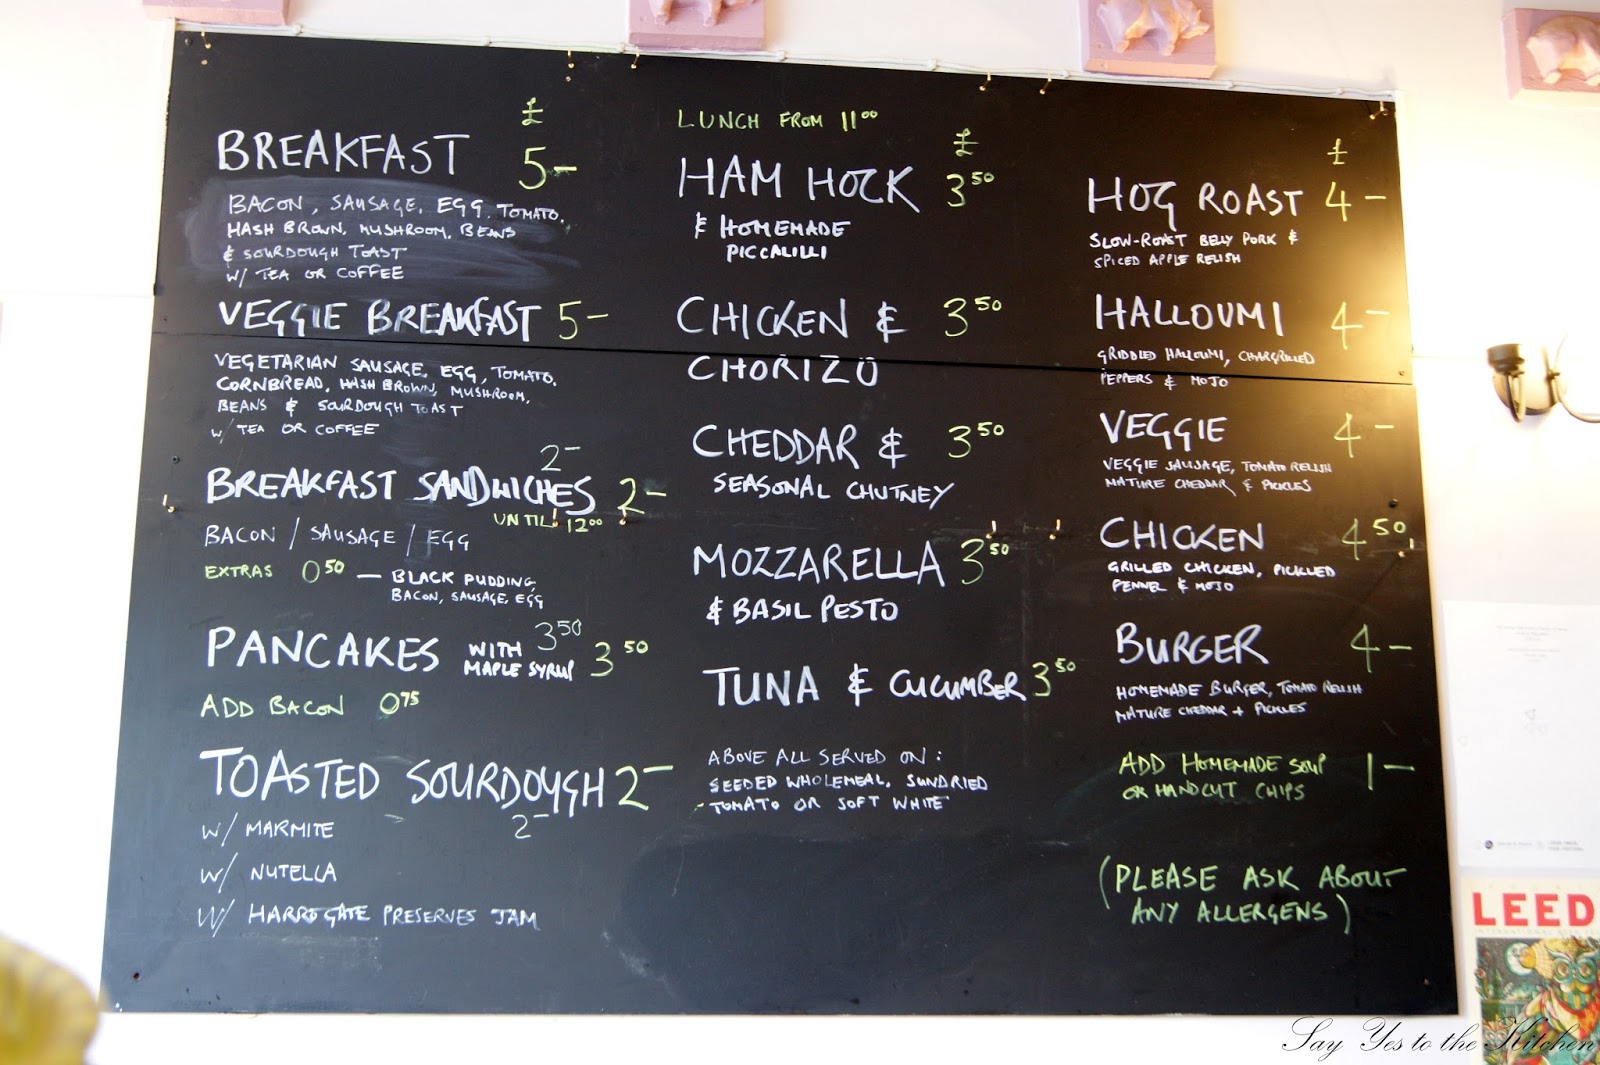 £
BREAKFAST 5-
BACON, SAUSAGE, EGG, TOMATO,
HASH BROWN, MUSHROOM, BEANS
& SOURDOUGH TOAST
W/ TEA OR COFFEE
VEGGIE BREAKFAST 5-
VEGETARIAN SAUSAGE, EGG, TOMATO,
CORNBREAD, HASH BROWN, MUSHROOM,
BEANS & SOURDOUGH TOAST
W/ TEA OR COFFEE
2-
BREAKFAST SANDWICHES 2-
UNTIL 12 00
BACON / SAUSAGE / EGG
EXTRAS 0 50 — BLACK PUDDING,
BACON, SAUSAGE, EGG
3 50
PANCAKES WITH MAPLE SYRUP 3 50
ADD BACON 0 75
TOASTED SOURDOUGH 2-
2-
W/ MARMITE
W/ NUTELLA
W/ HARROGATE PRESERVES JAM
LUNCH FROM 11 00
£
HAM HOCK 3 50
& HOMEMADE
PICCALILLI
CHICKEN & 3 50
CHORIZO
CHEDDAR & 3 50
SEASONAL CHUTNEY
MOZZARELLA 3 50
& BASIL PESTO
TUNA & CUCUMBER 3 50
ABOVE ALL SERVED ON:
SEEDED WHOLEMEAL, SUNDRIED
TOMATO OR SOFT WHITE
£
HOG ROAST 4-
SLOW-ROAST BELLY PORK &
SPICED APPLE RELISH
HALLOUMI 4-
GRIDDLED HALLOUMI, CHARGRILLED
PEPPERS & MOJO
VEGGIE 4-
VEGGIE SAUSAGE, TOMATO RELISH
MATURE CHEDDAR & PICKLES
CHICKEN 4 50
GRILLED CHICKEN, PICKLED
FENNEL & MOJO
BURGER 4-
HOMEMADE BURGER, TOMATO RELISH
MATURE CHEDDAR + PICKLES
ADD HOMEMADE SOUP 1-
OR HANDCUT CHIPS
(PLEASE ASK ABOUT
ANY ALLERGENS)
LEED
Say Yes to the Kitchen